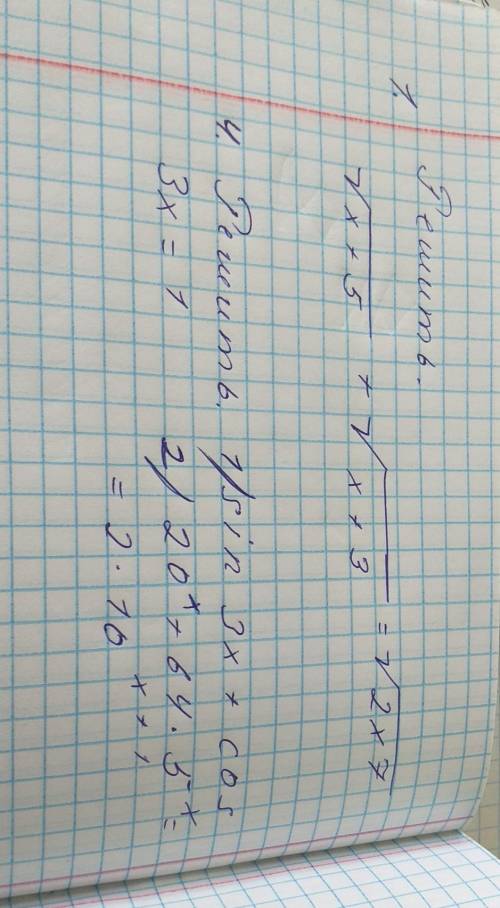 1. Решить.
√x+5 + √x+3 = √2x7
4. Решить. 1) sin 3x + cos
3x = 1 2) 20ˣ + 64·5ˣ =
= 2·10ˣ⁺¹